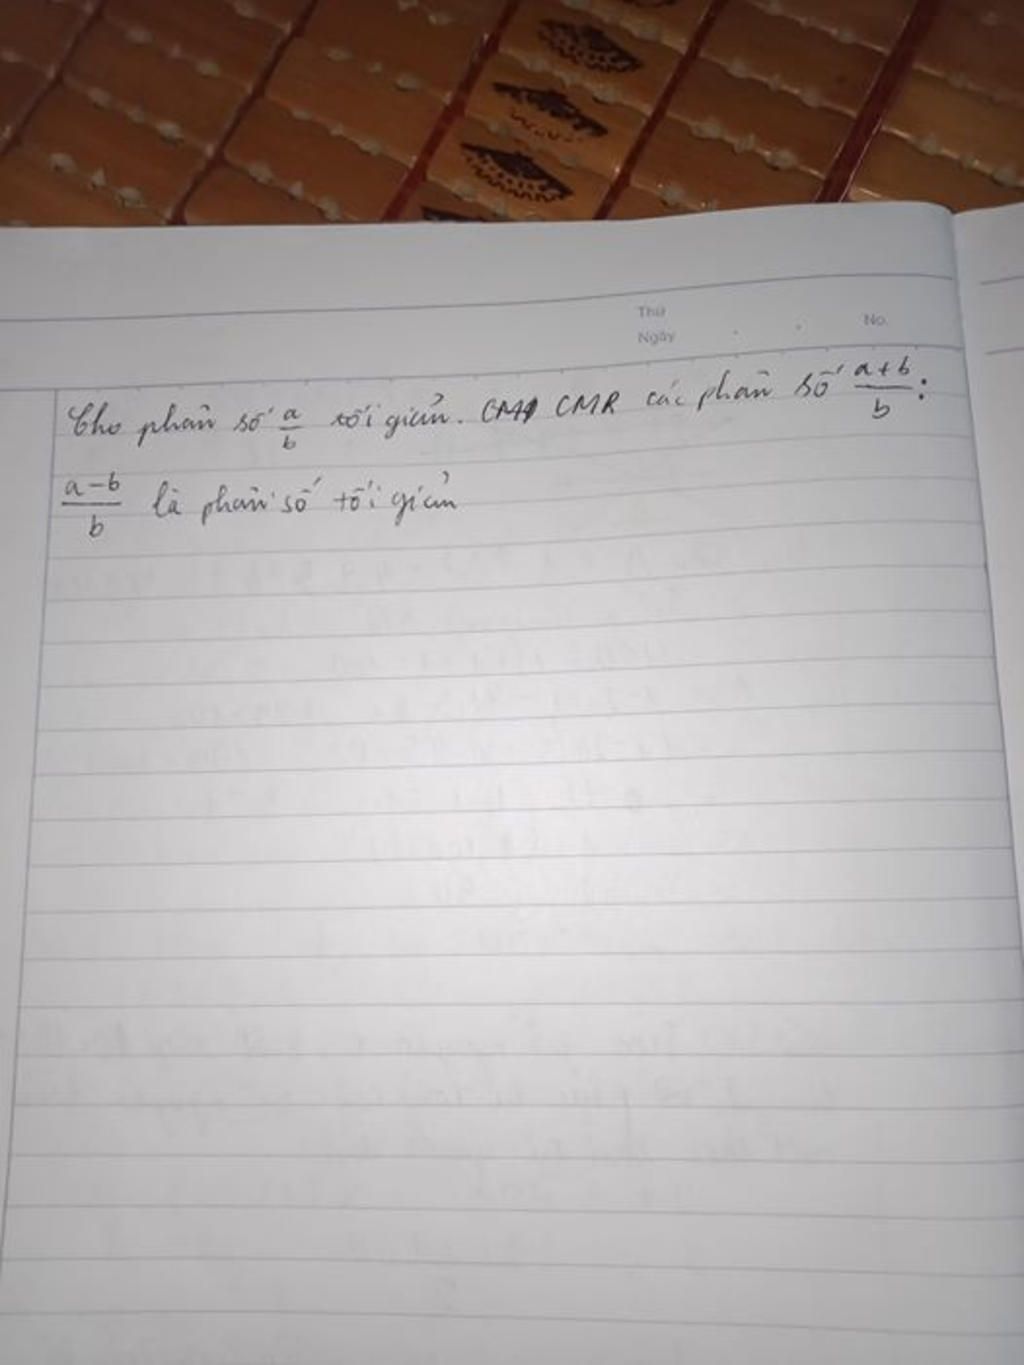 Thứ
Ngày No.
Cho phân số a/b tối giản. CMR các phân số (a+b)/b ;
(a-b)/b là phân số tối giản